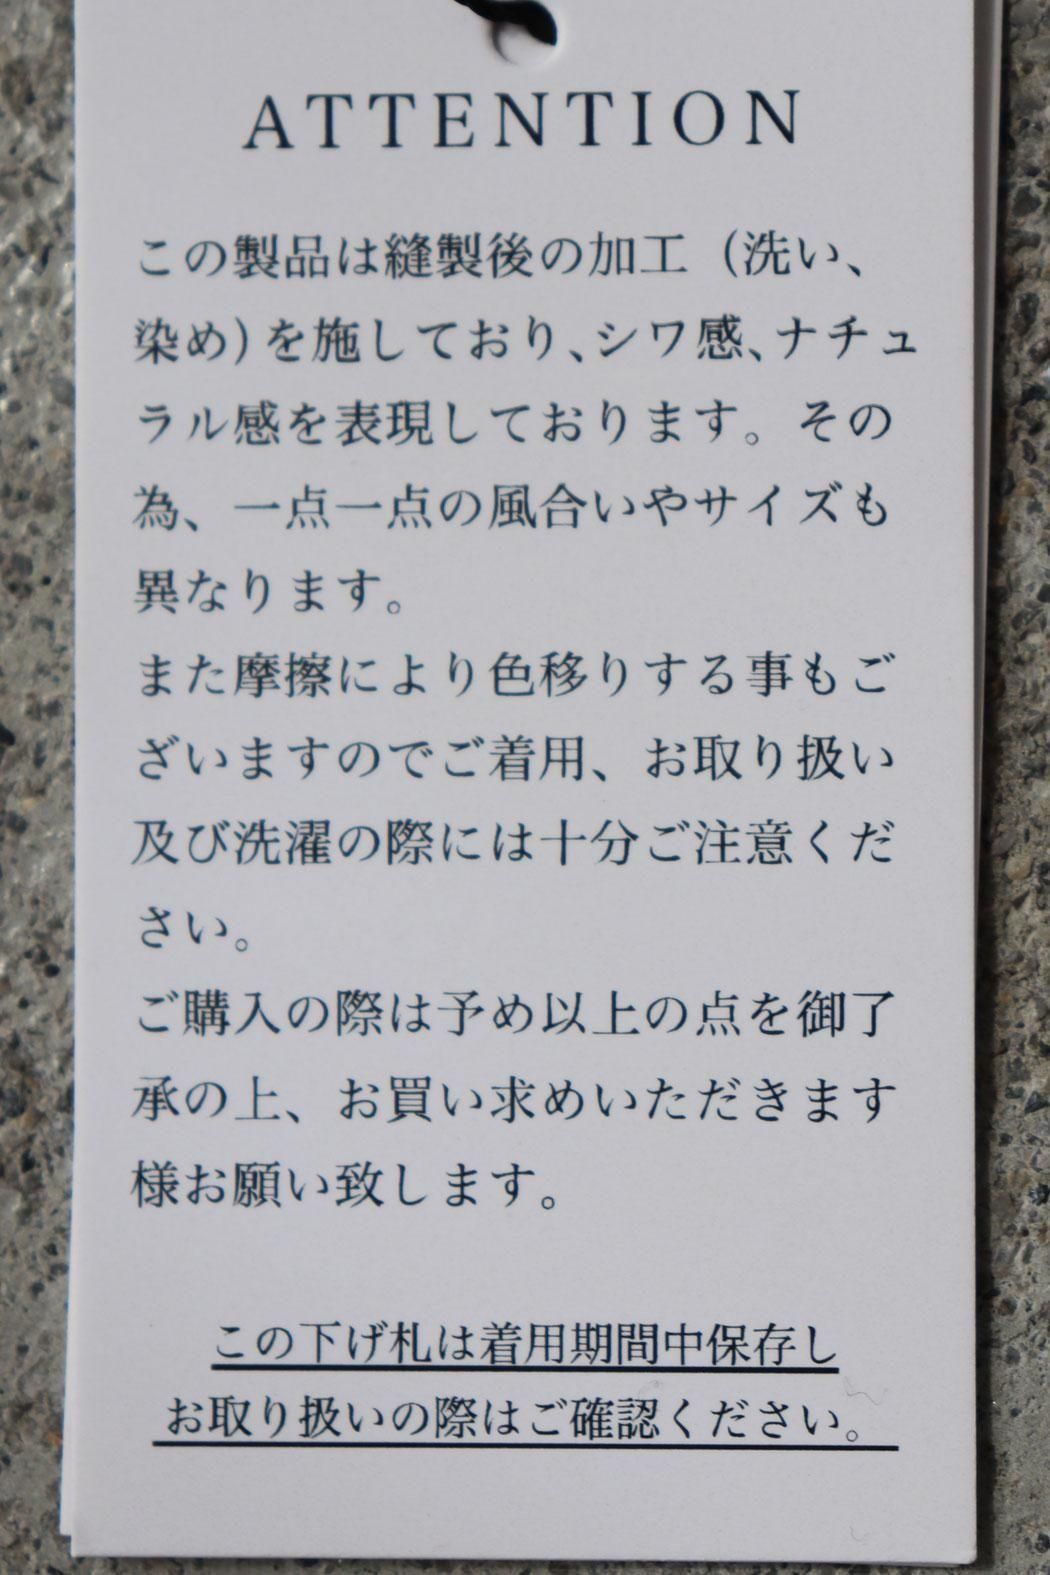 ATTENTION
この製品は縫製後の加工（洗い、
染め）を施しており、シワ感、ナチュ
ラル感を表現しております。その
為、一点一点の風合いやサイズも
異なります。
また摩擦により色移りする事もご
ざいますのでご着用、お取り扱い
及び洗濯の際には十分ご注意くだ
さい。
ご購入の際は予め以上の点を御了
承の上、お買い求めいただきます
様お願い致します。
この下げ札は着用期間中保存し
お取り扱いの際はご確認ください。